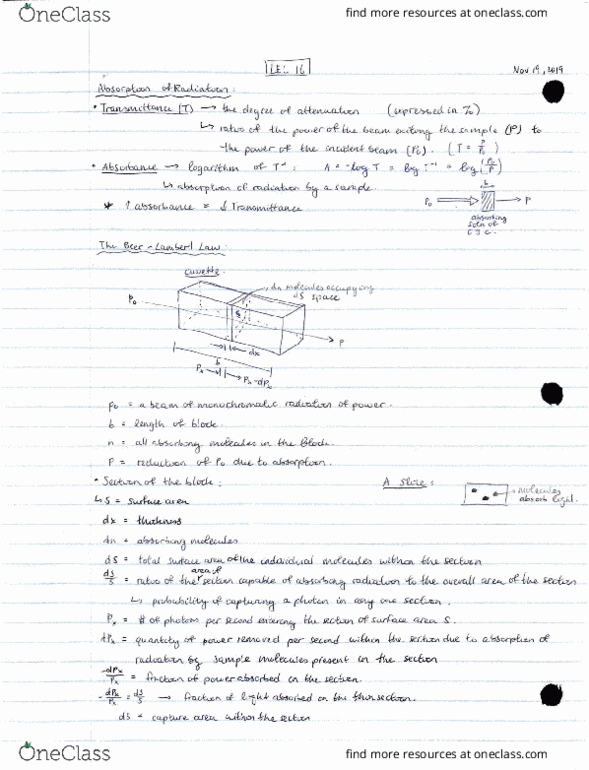 OneClass
find more resources at oneclass.com
LEC 16
Nov 19, 2019
Absorption of Radiation:
• Transmittance (T) → the degree of attenuation (expressed in %)
↳ ratio of the power of the beam exiting the sample (P) to
the power of the incident beam (P₀). (T = P/P₀)
• Absorbance → logarithm of T⁻¹: A = -log T = log T⁻¹ = log (P₀/P)
↳ absorption of radiation by a sample.
* ↑ absorbance = ↓ Transmittance
b
P₀ → P
absorbing
soln of
The Beer-Lambert Law:
cuvette
dn molecules occupying
dS space
P₀
S
dx
P
b
Pₓ → Pₓ - dPₓ
P₀ = a beam of monochromatic radiation of power.
b = length of block.
n = all absorbing molecules in the block.
P = reduction of P₀ due to absorption.
• Section of the block:
A slice:
molecules
absorb light.
↳ S = surface area
dx = thickness
dn = absorbing molecules
dS = total surface area of the individual molecules within the section
area of
dS/S = ratio of the section capable of absorbing radiation to the overall area of the section
↳ probability of capturing a photon in any one section.
Pₓ = # of photons per second entering the section of surface area S.
dPₓ = quantity of power removed per second within the section due to absorption of
radiation by sample molecules present in the section
-dPₓ/Pₓ = fraction of power absorbed in the section.
-dPₓ/Pₓ = dS/S → fraction of light absorbed in the thin section.
dS = capture area within the section
OneClass
find more resources at oneclass.com